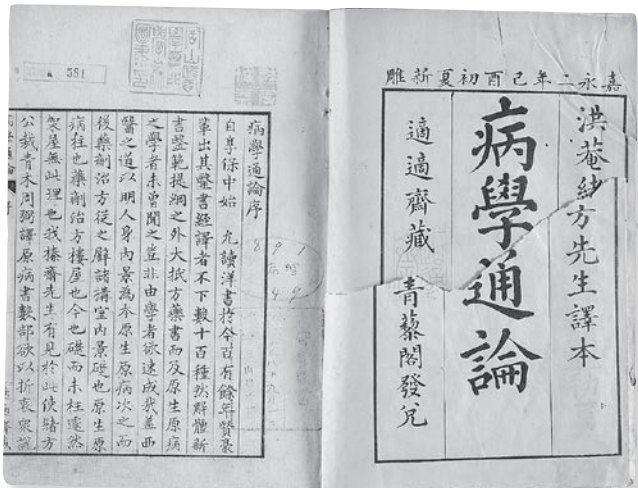 嘉永二年己酉初夏新雕
洪菴緒方先生譯本
病學通論
適適齋藏 青藜閣發兌
581
病學通論序
自享保中始 允讀洋書於今百有餘年賢豪
輩出其毉書經譯者不下數十百種然解體新
書毉範提綱之外大抵方藥書而及原生原病
之學者未曾聞之豈非由學者欲速成哉蓋西
醫之道以明人身內景為本原生原病次之而
後藥劑治方從之辟諸講室內景礎也原生原
病柱也藥劑治方樓屋也今也礎而未柱遽然
架屋無此理也我榛齋先生有見於此使緒方
公裁青木周弼譯原病書數部欲以折衷衆說